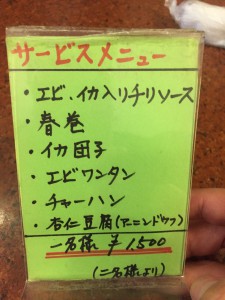 サービスメニュー
・エビ、イカ入リチリソース
・春巻
・イカ団子
・エビワンタン
・チャーハン
・杏仁豆腐(アニンドウフ)
一名様 ￥1,500
(二名様より)